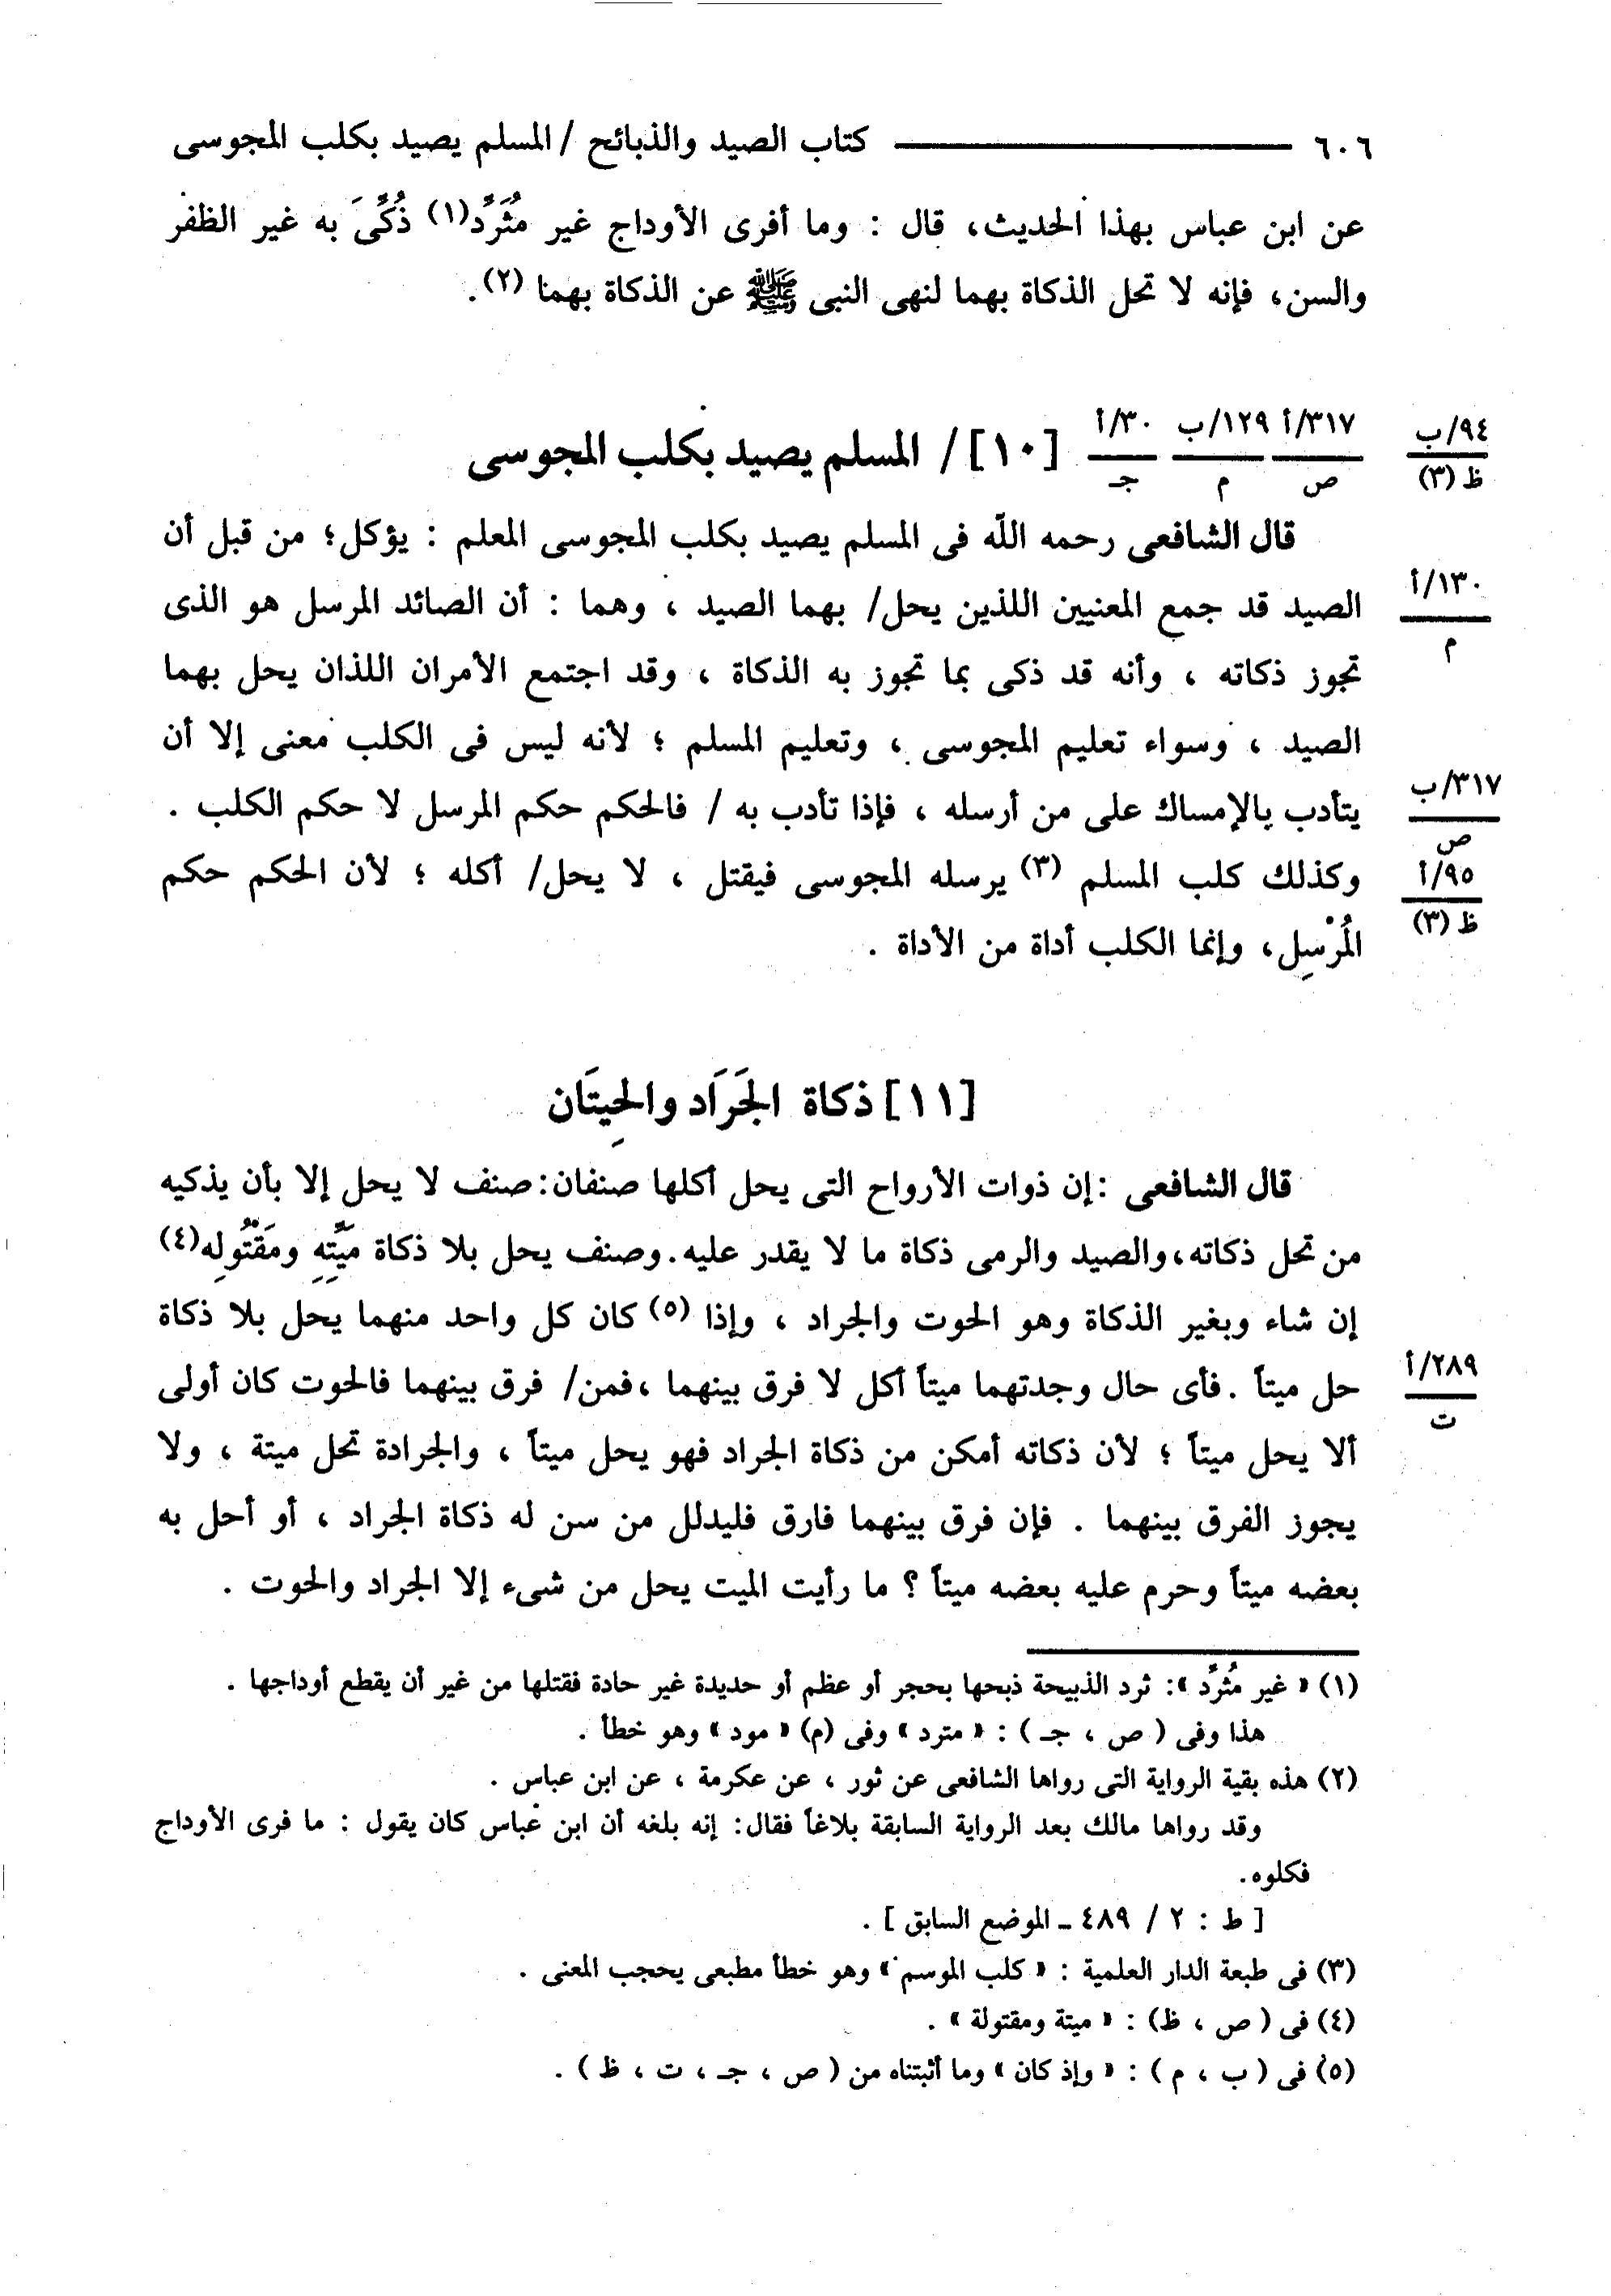 ٦٠٦ كتاب الصيد والذبائح / المسلم يصيد بكلب المجوسى
عن ابن عباس بهذا الحديث، قال : وما أفرى الأوداج غير مُثَرِّد(١) ذُكِّىَ به غير الظفر
والسن، فإنه لا تحل الذكاة بهما لنهى النبى ﷺ عن الذكاة بهما (٢).
٣١٧/أ ١٢٩/ب ٣٠/أ
ص م جـ
[١٠] / المسلم يصيد بكلب المجوسى
٩٤/ب
ظ (٣)
قال الشافعى رحمه الله فى المسلم يصيد بكلب المجوسى المعلم : يؤكل؛ من قبل أن
الصيد قد جمع المعنيين اللذين يحل/ بهما الصيد ، وهما : أن الصائد المرسل هو الذى
١٣٠/أ
م
تجوز ذكاته ، وأنه قد ذكى بما تجوز به الذكاة ، وقد اجتمع الأمران اللذان يحل بهما
الصيد ، وسواء تعليم المجوسى ، وتعليم المسلم ؛ لأنه ليس فى الكلب معنى إلا أن
يتأدب بالإمساك على من أرسله ، فإذا تأدب به / فالحكم حكم المرسل لا حكم الكلب .
٣١٧/ب
ص
وكذلك كلب المسلم (٣) يرسله المجوسى فيقتل ، لا يحل/ أكله ؛ لأن الحكم حكم
٩٥/أ
ظ (٣)
المُرْسِل، وإنما الكلب أداة من الأداة .
[١١] ذكاة الجَرَاد والحِيتَان
قال الشافعى :إن ذوات الأرواح التى يحل أكلها صنفان: صنف لا يحل إلا بأن يذكيه
من تحل ذكاته، والصيد والرمى ذكاة ما لا يقدر عليه. وصنف يحل بلا ذكاة مَيِّتِهِ ومَقْتُولِه(٤)
إن شاء وبغير الذكاة وهو الحوت والجراد ، وإذا (٥) كان كل واحد منهما يحل بلا ذكاة
حل ميتاً . فأى حال وجدتهما ميتاً أكل لا فرق بينهما ،فمن/ فرق بينهما فالحوت كان أولى
٢٨٩/أ
ت
ألا يحل ميتاً ؛ لأن ذكاته أمكن من ذكاة الجراد فهو يحل ميتاً ، والجرادة تحل ميتة ، ولا
يجوز الفرق بينهما . فإن فرق بينهما فارق فليدلل من سن له ذكاة الجراد ، أو أحل به
بعضه ميتاً وحرم عليه بعضه ميتاً ؟ ما رأيت الميت يحل من شىء إلا الجراد والحوت .
(١) « غير مُثرِّد »: ثرد الذبيحة ذبحها بحجر أو عظم أو حديدة غير حادة فقتلها من غير أن يقطع أوداجها .
هذا وفى ( ص ، جـ ) : « مترد » وفى (م) « مود » وهو خطأ .
(٢) هذه بقية الرواية التى رواها الشافعى عن ثور ، عن عكرمة ، عن ابن عباس .
وقد رواها مالك بعد الرواية السابقة بلاغاً فقال: إنه بلغه أن ابن عباس كان يقول : ما فرى الأوداج
فكلوه.
[ ط : ٢ / ٤٨٩ ـ الموضع السابق ] .
(٣) فى طبعة الدار العلمية : « كلب الموسم » وهو خطأ مطبعى يحجب المعنى .
(٤) فى ( ص ، ظ) : « ميتة ومقتولة » .
(٥) فى ( ب ، م ) : « وإذ كان » وما أثبتناه من ( ص ، جـ ، ت ، ظ ) .